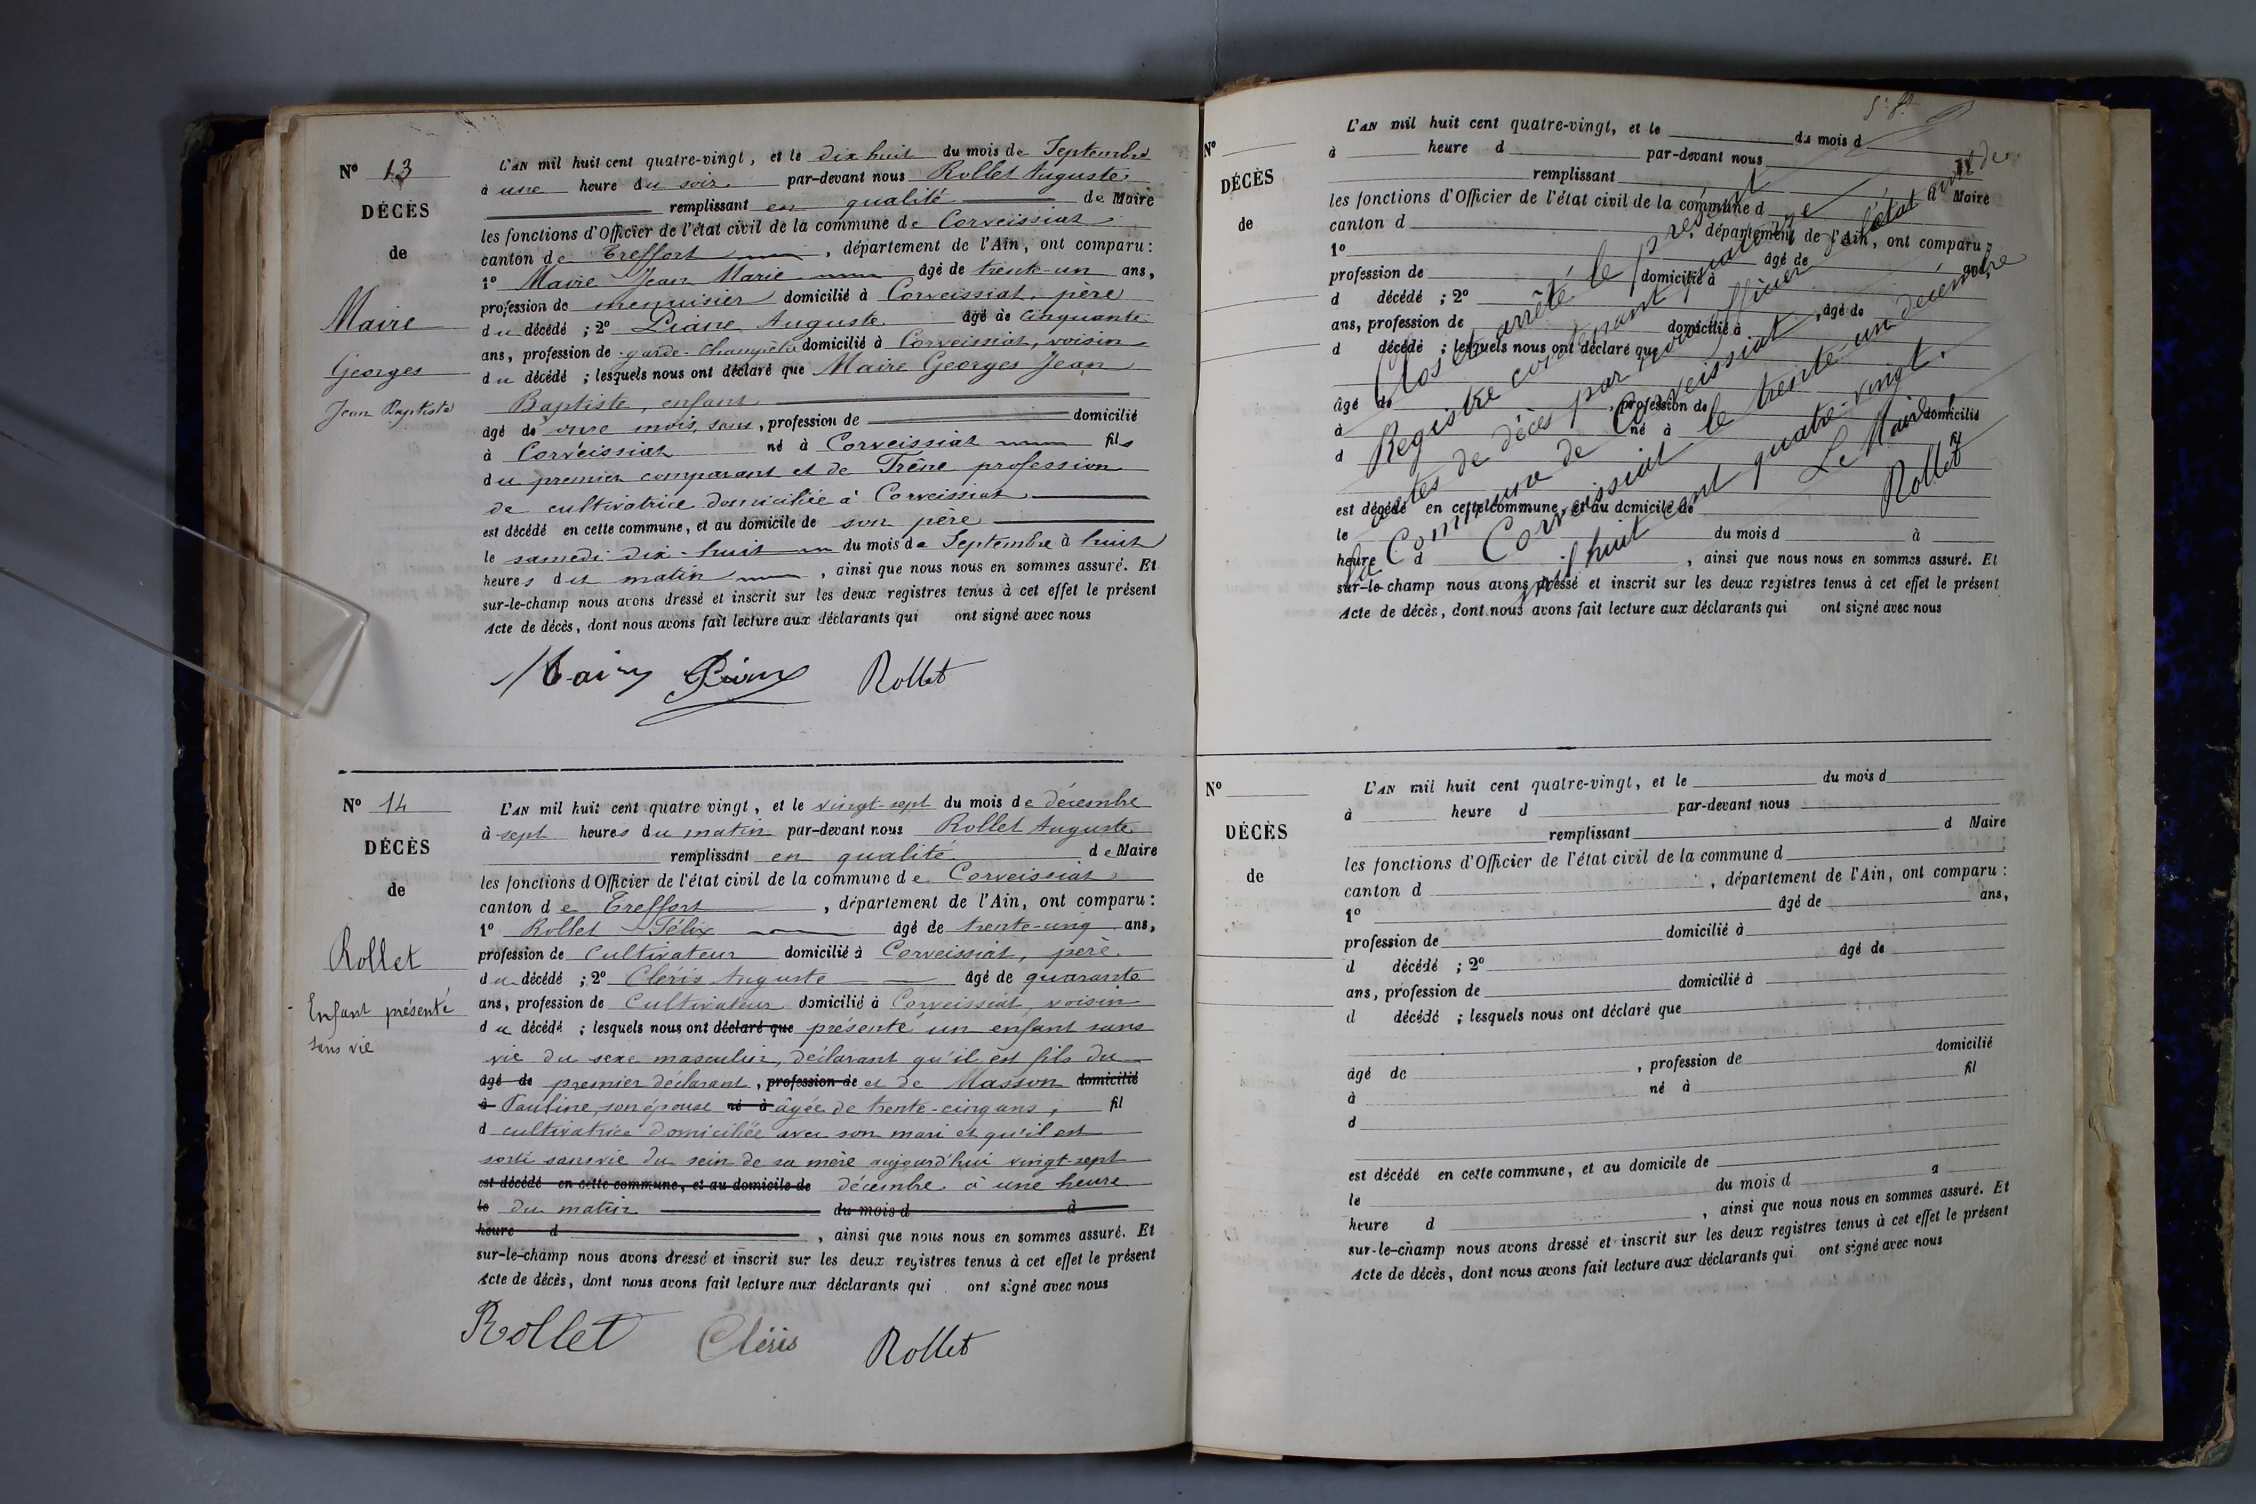 N° 13
DÉCÈS
de
Maire
Georges
Jean Baptiste
L'AN mil huit cent quatre-vingt, et le dix huit du mois de Septembre
à une heure du soir par-devant nous Rollet Auguste
remplissant en qualité de Maire
les fonctions d'Officier de l'état civil de la commune de Corveissiat
canton de Treffort, département de l'Ain, ont comparu :
1° Maire Jean Marie âgé de trente-un ans,
profession de menuisier domicilié à Corveissiat, père
du décédé ; 2° Piane Auguste âgé de cinquante
ans, profession de garde-champêtre domicilié à Corveissiat, voisin
du décédé ; lesquels nous ont déclaré que Maire Georges Jean
Baptiste, enfant
âgé de onze mois, sans, profession de domicilié
à Corveissiat né à Corveissiat fils
du premier comparant et de Trêne profession
de cultivatrice domiciliée à Corveissiat
est décédé en cette commune, et au domicile de son père
le samedi dix-huit du mois de Septembre à huit
heures du matin, ainsi que nous nous en sommes assuré. Et
sur-le-champ nous avons dressé et inscrit sur les deux registres tenus à cet effet le présent
Acte de décès, dont nous avons fait lecture aux déclarants qui ont signé avec nous
Rollet
N° 14
DÉCÈS
de
Rollet
Enfant présenté
sans vie
L'AN mil huit cent quatre vingt, et le vingt-sept du mois de décembre
à sept heures du matin par-devant nous Rollet Auguste
remplissant en qualité de Maire
les fonctions d'Officier de l'état civil de la commune de Corveissiat
canton de Treffort, département de l'Ain, ont comparu :
1° Rollet Félix âgé de trente-cinq ans,
profession de Cultivateur domicilié à Corveissiat, père
du décédé ; 2° Cléris Auguste âgé de quarante
ans, profession de Cultivateur domicilié à Corveissiat voisin
du décédé ; lesquels nous ont déclaré que présenté un enfant sans
vie du sexe masculin, déclarant qu'il est fils du
âgé de premier déclarant, profession de et de Masson domicilié
à Pauline, son épouse né à âgée de trente-cinq ans, fil
d cultivatrice domiciliée avec son mari et qu'il est
sorti sans vie du sein de sa mère aujourd'hui vingt-sept
est décédé en cette commune, et au domicile de décembre à une heure
le du matin du mois d à
heure d, ainsi que nous nous en sommes assuré. Et
sur-le-champ nous avons dressé et inscrit sur les deux registres tenus à cet effet le présent
Acte de décès, dont nous avons fait lecture aux déclarants qui ont signé avec nous
Rollet Cléris Rollet
N°
DÉCÈS
de
L'AN mil huit cent quatre-vingt, et le du mois d
à heure d par-devant nous
remplissant d Maire
les fonctions d'Officier de l'état civil de la commune d
canton d, département de l'Ain, ont comparu :
1° âgé de ans,
profession de domicilié à
d décédé ; 2° âgé de
ans, profession de domicilié à
d décédé ; lesquels nous ont déclaré que
âgé de, profession de domicilié
à né à fil
d
est décédé en cette commune, et au domicile de
le du mois d à
heure d, ainsi que nous nous en sommes assuré. Et
sur-le-champ nous avons dressé et inscrit sur les deux registres tenus à cet effet le présent
Acte de décès, dont nous avons fait lecture aux déclarants qui ont signé avec nous
Clos et arrêté le présent
Registre contenant quatorze
actes de décès par nous officier de l'état civil de
la Commune de Corveissiat
Corveissiat le trente-un décembre
mil huit cent quatre-vingt.
Le Maire
Rollet
N°
DÉCÈS
de
L'AN mil huit cent quatre-vingt, et le du mois d
à heure d par-devant nous
remplissant d Maire
les fonctions d'Officier de l'état civil de la commune d
canton d, département de l'Ain, ont comparu :
1° âgé de ans,
profession de domicilié à
d décédé ; 2° âgé de
ans, profession de domicilié à
d décédé ; lesquels nous ont déclaré que
âgé de, profession de domicilié
à né à fil
d
est décédé en cette commune, et au domicile de
le du mois d a
heure d, ainsi que nous nous en sommes assuré. Et
sur-le-champ nous avons dressé et inscrit sur les deux registres tenus à cet effet le présent
Acte de décès, dont nous avons fait lecture aux déclarants qui ont signé avec nous